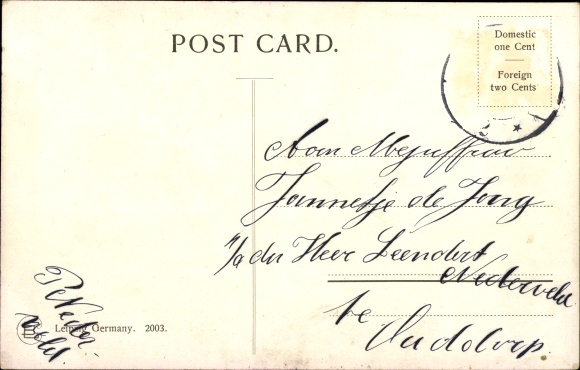 POST CARD.
Domestic
one Cent
Foreign
two Cents
Aan Mejuffrouw
Jannetje de Jong
p/a den Heer Leendert
Nederveld
te
Ouddorp
P. Neder-
veld.
Leipzig Germany. 2003.